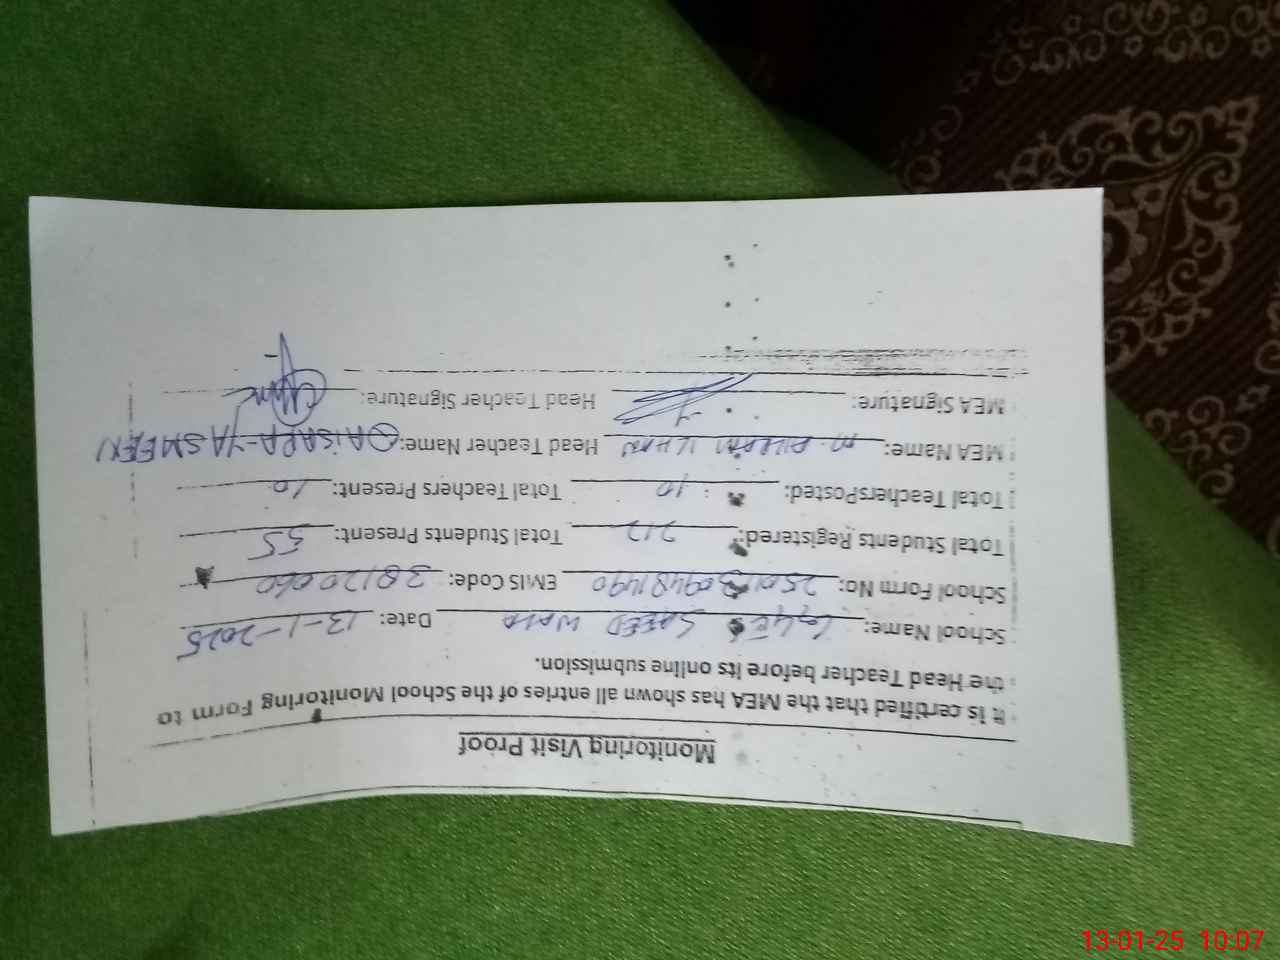 Monitoring Visit Proof
It is certified that the MEA has shown all entries of the School Monitoring Form to
the Head Teacher before its online submission.
School Name: SAEED WALA Date: 13-1-2025
School Form No: EMIS Code: 38120060
Total Students Registered: 212 Total Students Present: 55
Total TeachersPosted: 10 Total Teachers Present: 10
MEA Name: M. KHAN Head Teacher Name: YASMEEN
MEA Signature: Head Teacher Signature:
13-01-25 10:07